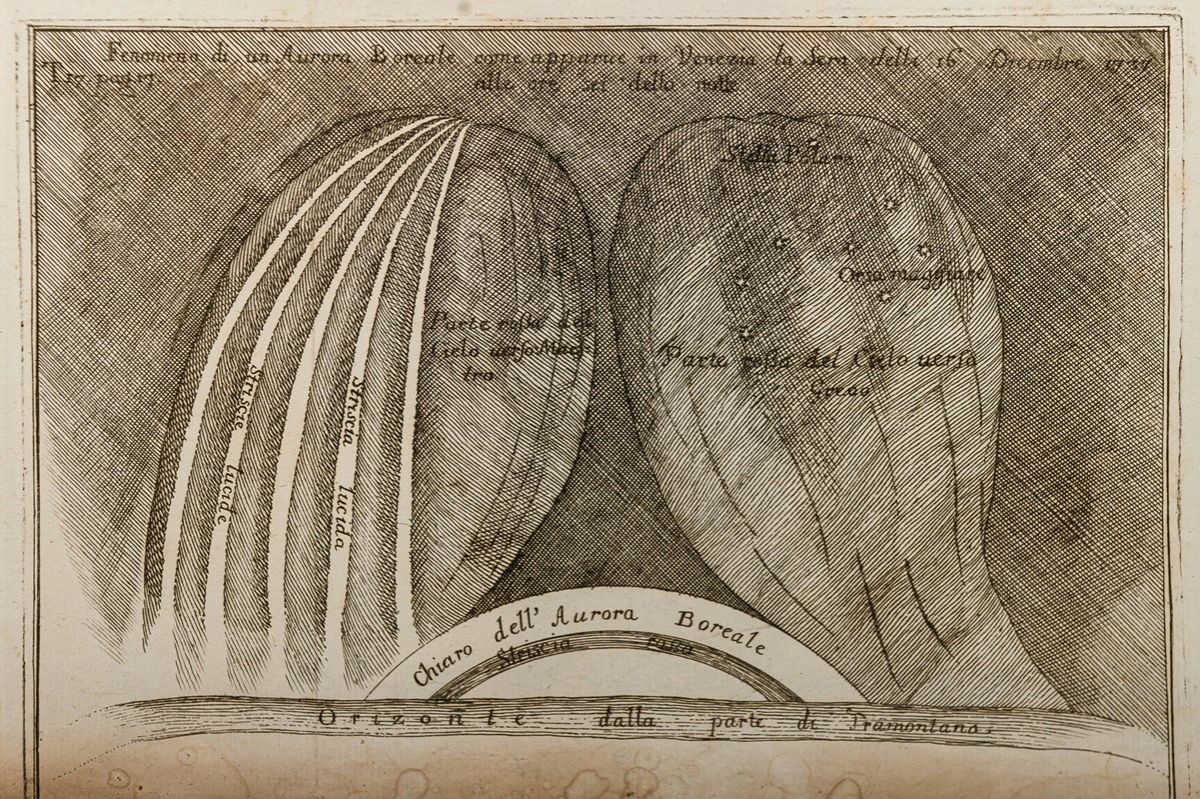 Fenomeno di un'Aurora Boreale come apparue in Venezia la Sera delli 16 Decembre 1737
alle ore sei della notte
Stella Polare
Orsa maggiore
Parte rossa del
Cielo uerso Maes
tro
Parte rossa del Cielo uerso
Greco
Striscie lucide
Striscia lucida
Chiaro dell' Aurora Boreale
Striscia
Orizonte dalla parte di Tramontana